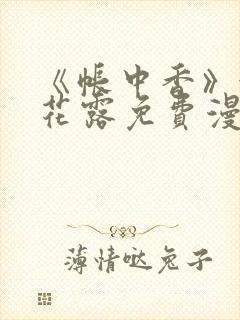 《帐中香》
花露免费漫
薄情哒兔子